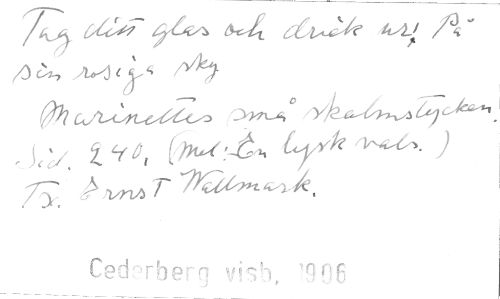 Tag ditt glas och drick ur! På
sin rosiga sky
Marinettes små skalmstycken.
Sid. 240, (Mel: En tysk vals.)
Tx. Ernst Wallmark.
Cederberg visb, 1906